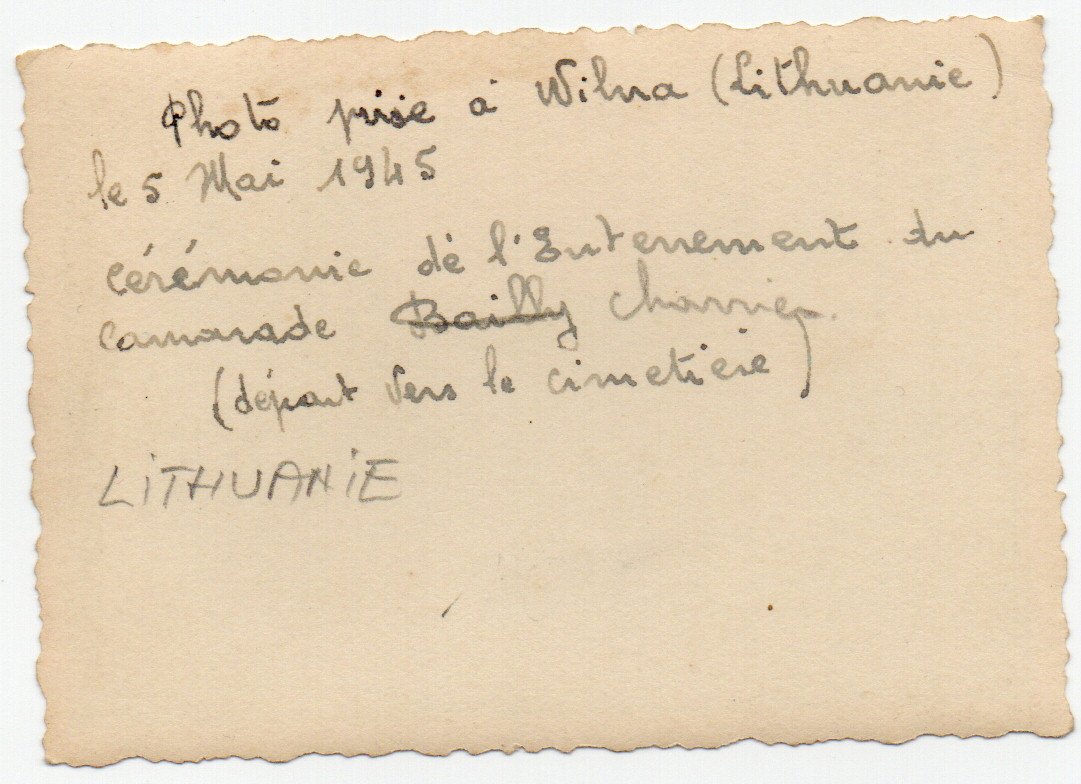 Photo prise à Wilna (Lithuanie)
le 5 Mai 1945
cérémonie dè l'Enterrement du
camarade Bailly Charrier.
(départ vers le cimetière)
LiTHUANiE